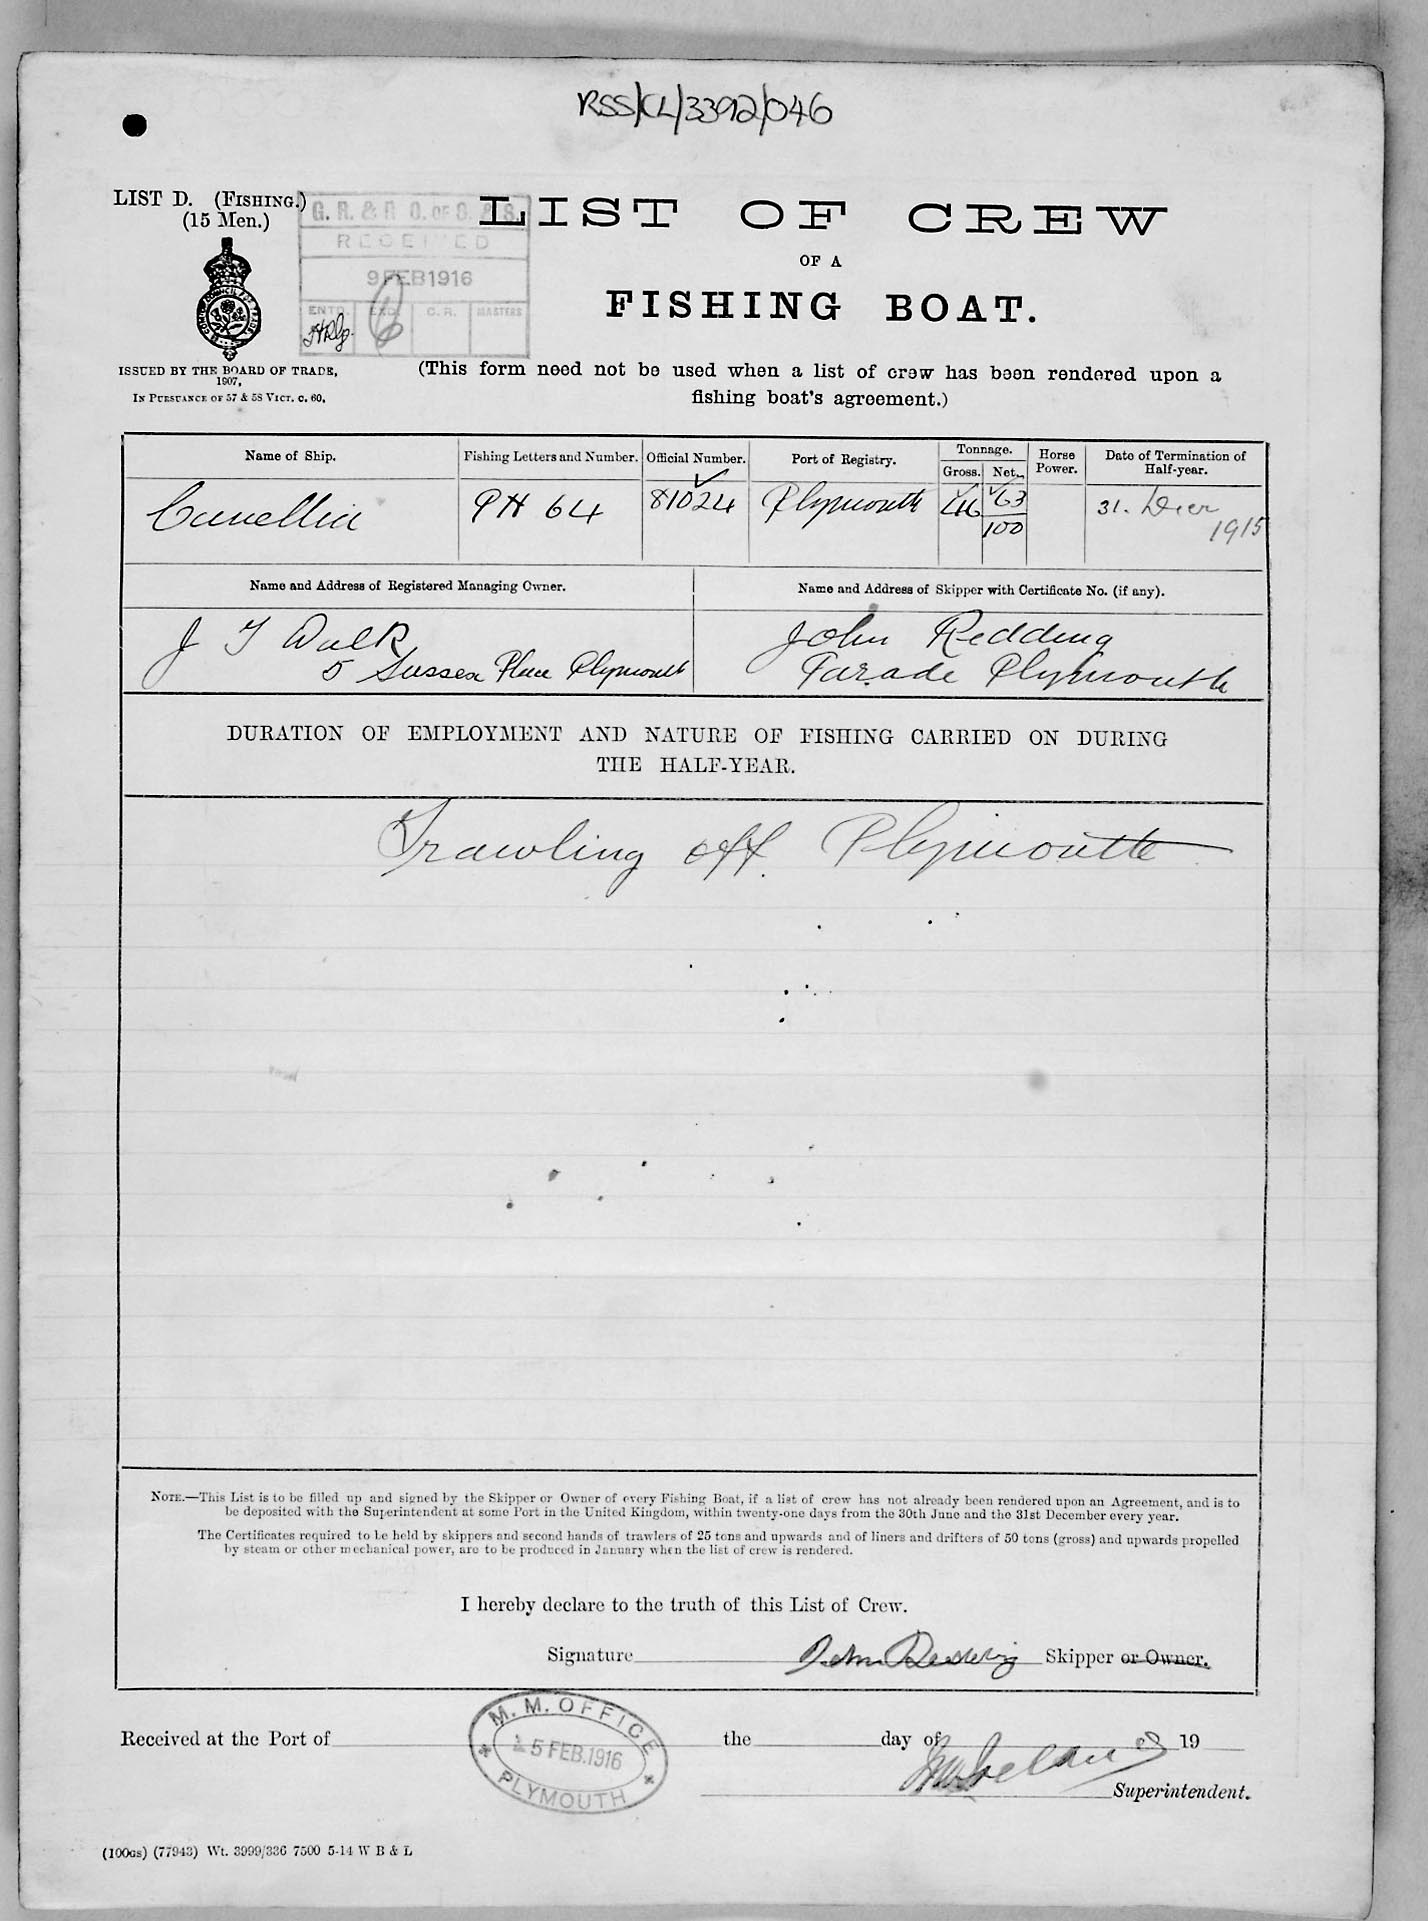 RSS/CL/3392/046
LIST D. (FISHING.)
(15 Men.)
G. R. & R. O. OF S. & S.
RECEIVED
9 FEB 1916
ENTD. EXD. C. R. MASTERS
LIST OF CREW
OF A
FISHING BOAT.
ISSUED BY THE BOARD OF TRADE,
1907,
IN PURSUANCE OF 57 & 58 VICT. C. 60.
(This form need not be used when a list of crew has been rendered upon a
fishing boat's agreement.)
Name of Ship. Fishing Letters and Number. Official Number. Port of Registry. Tonnage. Gross. Net. Horse Power. Date of Termination of Half-year.
Camellia PH 64 81024 Plymouth 46 63/100 31. Decr 1915
Name and Address of Registered Managing Owner. Name and Address of Skipper with Certificate No. (if any).
J T John Redding
5 Sussex Place Plymouth Parade Plymouth
DURATION OF EMPLOYMENT AND NATURE OF FISHING CARRIED ON DURING
THE HALF-YEAR.
Trawling off Plymouth
NOTE.—This List is to be filled up and signed by the Skipper or Owner of every Fishing Boat, if a list of crew has not already been rendered upon an Agreement, and is to
be deposited with the Superintendent at some Port in the United Kingdom, within twenty-one days from the 30th June and the 31st December every year.
The Certificates required to be held by skippers and second hands of trawlers of 25 tons and upwards and of liners and drifters of 50 tons (gross) and upwards propelled
by steam or other mechanical power, are to be produced in January when the list of crew is rendered.
I hereby declare to the truth of this List of Crew.
Signature John Redding Skipper or Owner.
M. M. OFFICE
5 FEB. 1916
PLYMOUTH
Received at the Port of the day of 19
Superintendent.
(100GS) (77943) Wt. 3999/336 7500 5-14 W B & L